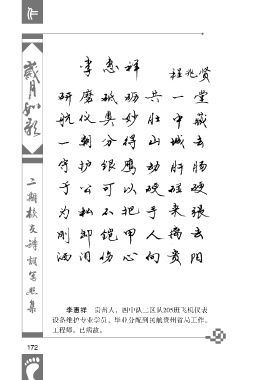 歲月如歌
二期校友诗词写照集
李惠祥
程兆贤
研磨砥砺共一堂
航仪奥妙肚中藏
一朝分得山城去
守护银鹰动肝肠
于公可以硬碰硬
为私不把手来张
刚卸铠甲人离去
洒泪伤心向贵阳
李惠祥　贵州人，四中队二区队205班飞机仪表
设备维护专业学员。毕业分配到民航贵州省局工作。
工程师。已病故。
172